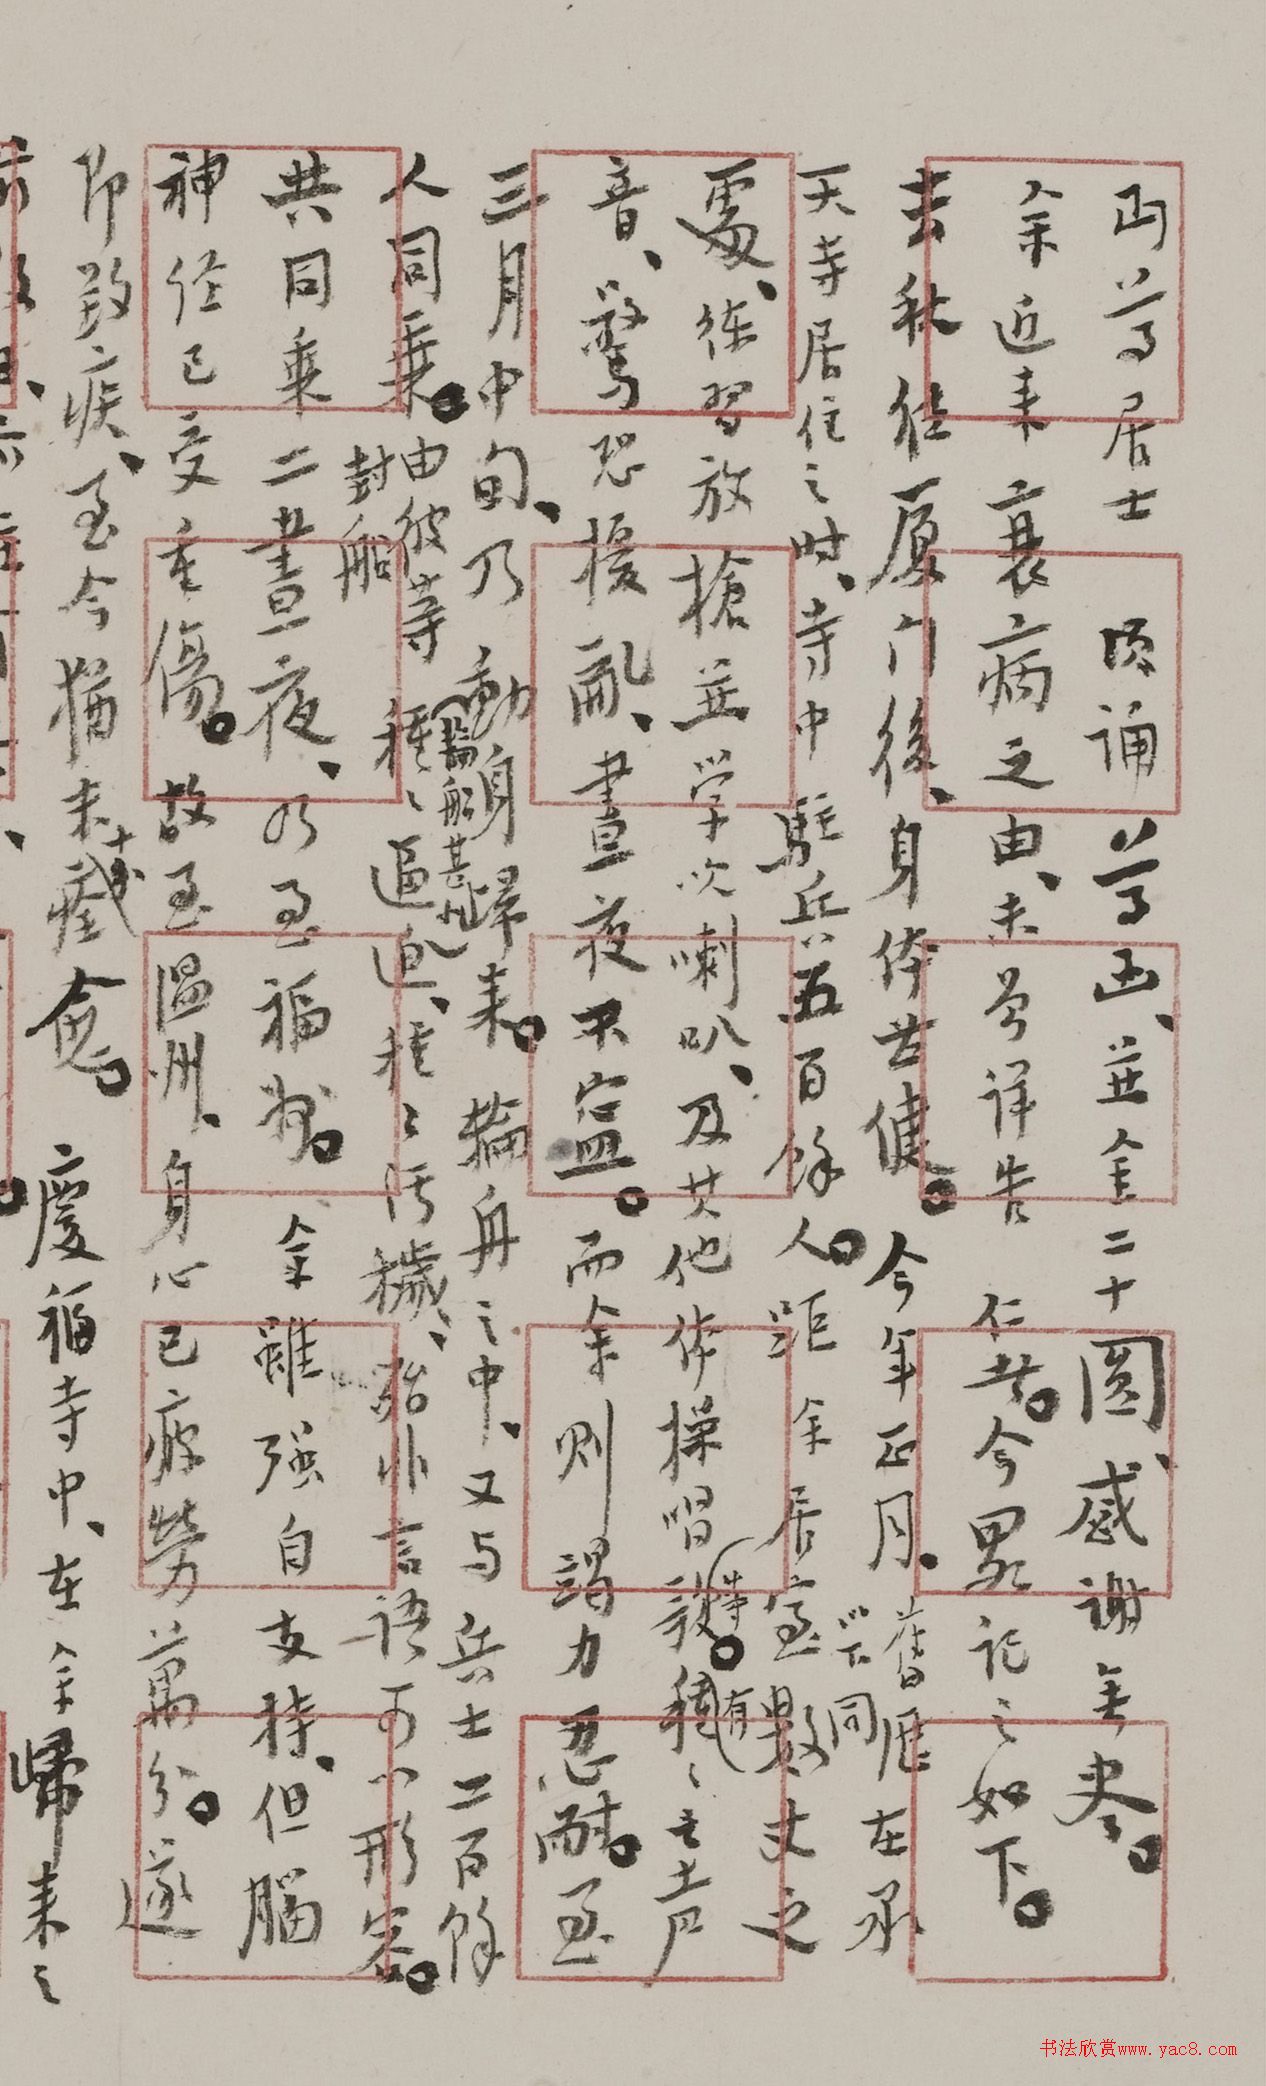 丏尊居士 頃誦尊函、並金二十圓、感謝無盡。
余近来衰病之由、未曾詳告 仁者。今略記之如下。
去秋往厦门後、身体甚健。今年正月、舊歷以下同在承
天寺居住之时、寺中駐兵五百餘人。距余居室數丈之
處、练習放槍並学吹喇叭、及其他体操唱歌等。有種〻之声
音、驚恐擾亂、晝夜不寍。而余則竭力忍耐。至
三月中旬、乃動身歸来。輪舟之中、又与兵士二百餘
人同乗。由彼等封船種〻逼迫、種〻污穢、殆非言語可以形容。
輪船甚小
共同乗二晝夜、乃至福州。余雖强自支持、但腦
神经已受重傷。故至溫州、身心已疲勞萬分。遂
即致疾、至今猶未十成痊愈。 慶福寺中、在余歸来之